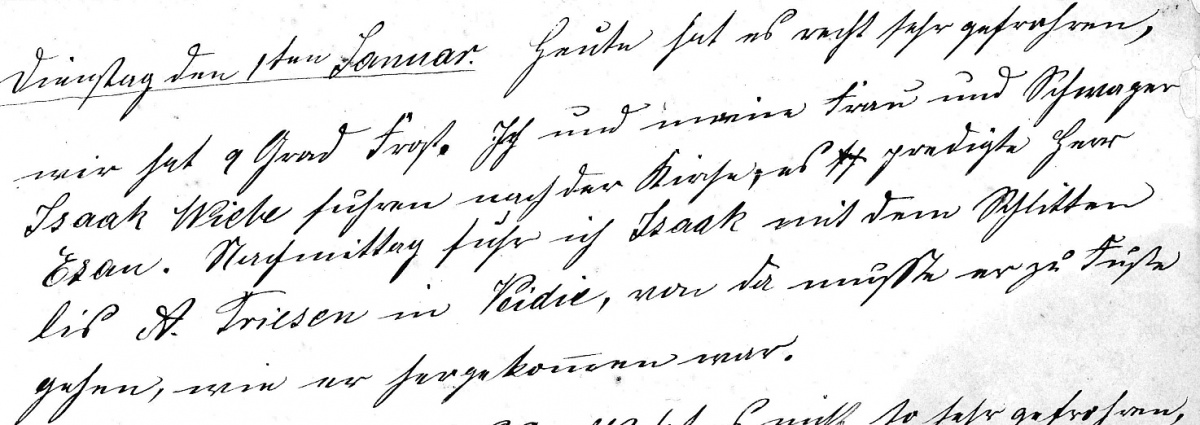 Dienstag den 1ten Januar. Heute hat es recht sehr gefrohren,
wir hat 9 Grad Frost. Ich und meine Frau und Schwager
Isaak Wiebe fuhren nach der Kirche, es predigte Herr
Esau. Nachmittag fuhr ich Isaak mit dem Schlitten
bis A. Friesen in, von da musste er zu Fuße
gehen, wie er hergekommen war.
es nicht so sehr gefrohren,